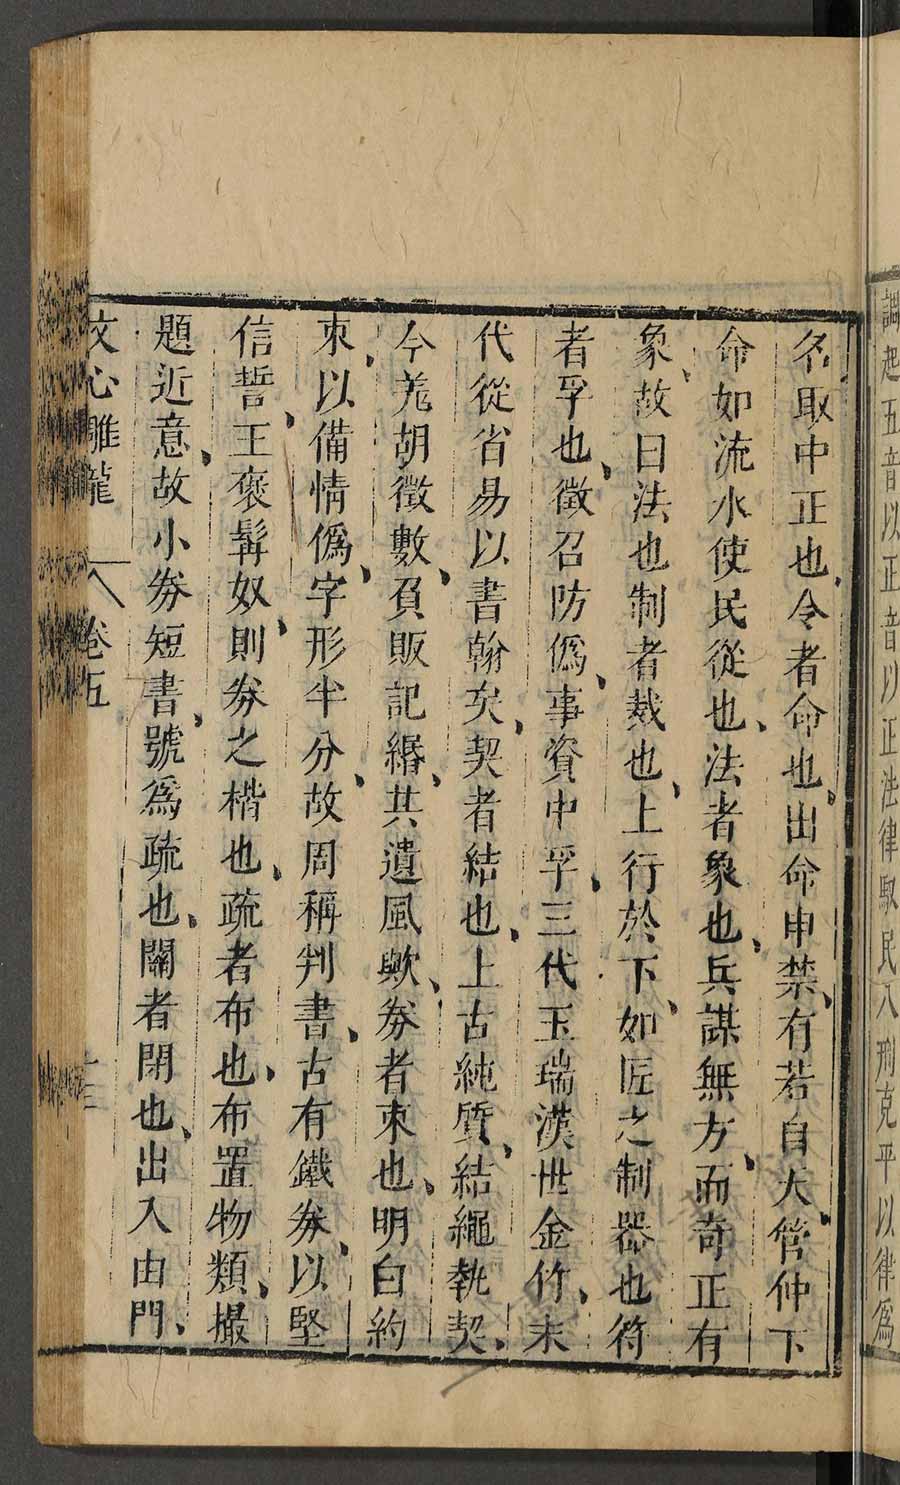 調起五音以正音以正法律馭民八刑克平以律爲
名取中正也令者命也出命申禁有若自天管仲下
命如流水使民從也法者象也兵謀無方而奇正有
象故曰法也制者裁也上行於下如匠之制器也符
者孚也徵召防僞事資中孚三代玉瑞漢世金竹末
代從省易以書翰矣契者結也上古純質結繩執契
今羗胡徵數負販記緡其遺風歟券者束也明白約
束以備情僞字形半分故周稱判書古有鐵券以堅
信誓王褒髯奴則券之楷也疏者布也布置物類撮
題近意故小券短書號爲疏也關者閉也出入由門
文心雕龍 卷五